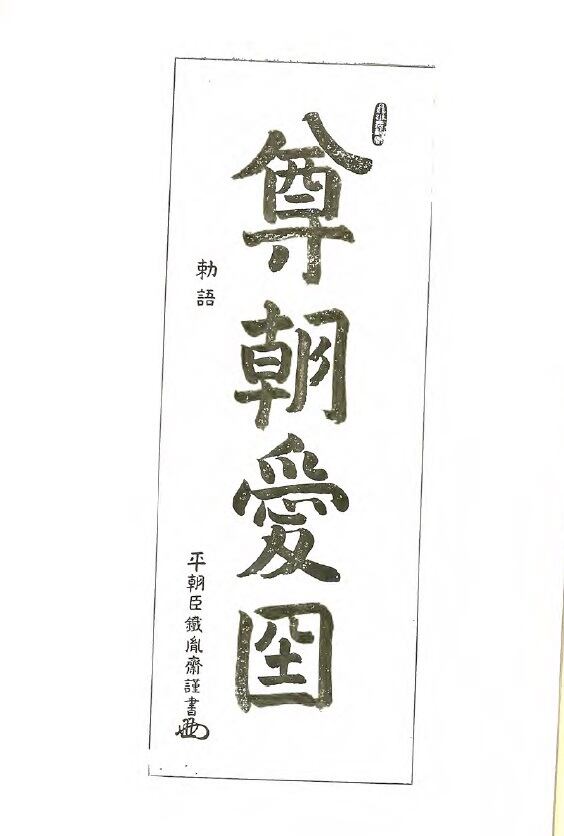 尊朝愛圀
勅語
平朝臣鐵胤齋謹書